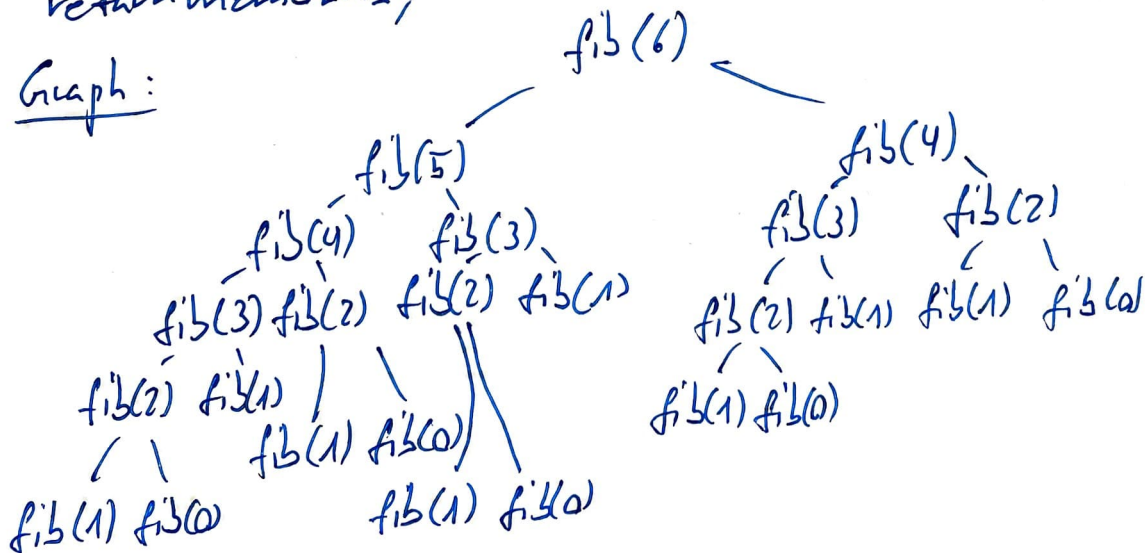 fib(6)
Graph:
fib(5) fib(4)
fib(4) fib(3) fib(3) fib(2)
fib(3) fib(2) fib(2) fib(1) fib(2) fib(1) fib(1) fib(0)
fib(2) fib(1) fib(1) fib(0)
fib(1) fib(0)
fib(1) fib(0) fib(1) fib(0)